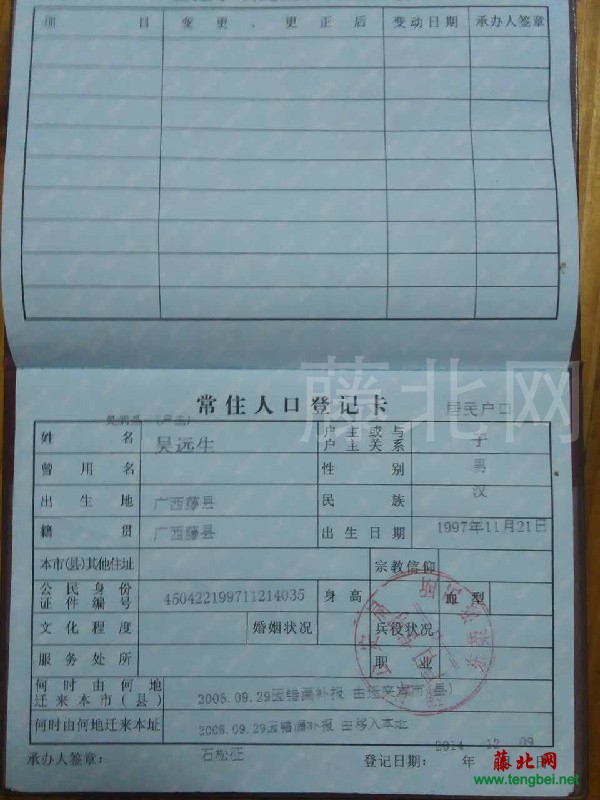 项 目 变 更 、 更 正 后 变动日期 承办人签章
藤北网
常住人口登记卡 居民户口
姓 名 吴远生 户主或与户主关系 子
曾用名 性 别 男
出生地 广西藤县 民 族 汉
籍 贯 广西藤县 出生日期 1997年11月21日
本市(县)其他住址 宗教信仰
公民身份证件编号 450422199711214035 身高 血型
文化程度 婚姻状况 兵役状况
服务处所 职业
何时由何地迁来本市(县) 2005.09.29因错漏补报 由 迁来本市(县)
何时由何地迁来本址 2005.09.29因错漏补报 由 移入本址
承办人签章： 石松征 登记日期： 2014 年 12 09 日
藤北网
www.tengbei.net